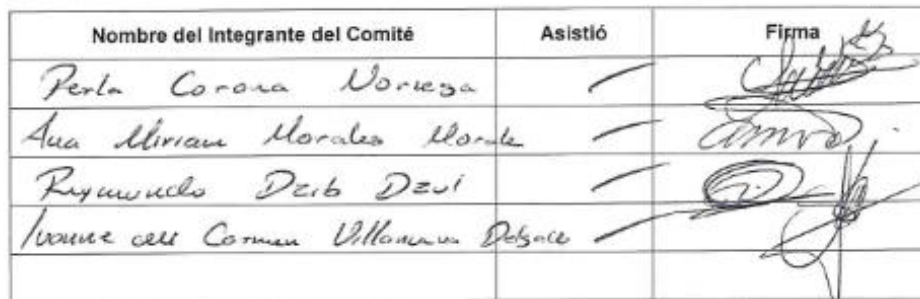 Nombre del Integrante del Comité Asistió Firma
Perla Corona Noriega
Ana Miriam Morales Morale
Raymundo Dzib Dzul
Ivonne del Carmen Villanueva Delgado